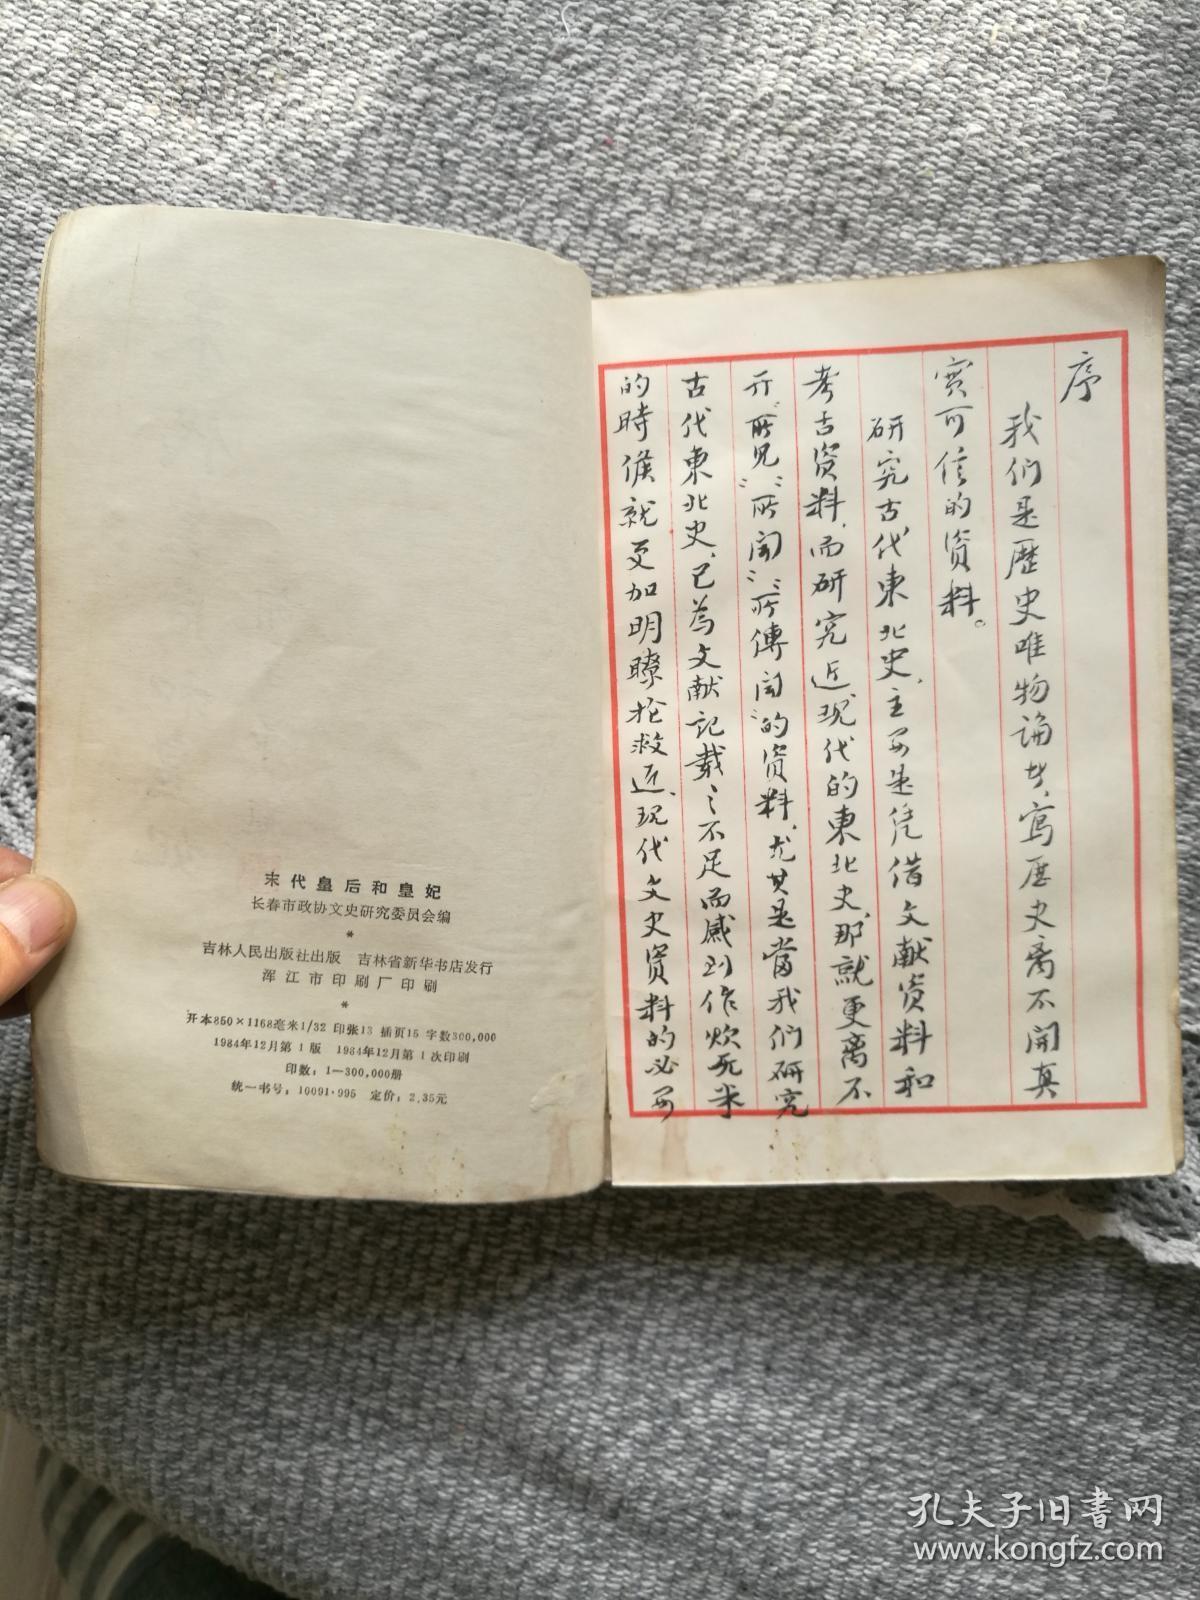 末代皇后和皇妃
长春市政协文史研究委员会编
*
吉林人民出版社出版 吉林省新华书店发行
浑江市印刷厂印刷
*
开本850×1168毫米1/32 印张13 插页15 字数300,000
1984年12月第1版 1984年12月第1次印刷
印数：1—300,000册
统一书号：10091·995 定价：2.35元
序
我们是歷史唯物論者，寫歷史离不開真
实可信的资料。
研究古代東北史，主要是凭借文献资料和
考古资料，而研究近、现代的東北史，那就更离不
开“所见”“所闻”“所傳闻”的资料，尤其是當我们研究
古代東北史，已為文献记载之不足而感到作炊无米
的時候就更加明瞭抢救近、现代文史资料的必要
孔夫子旧书网
www.kongfz.com